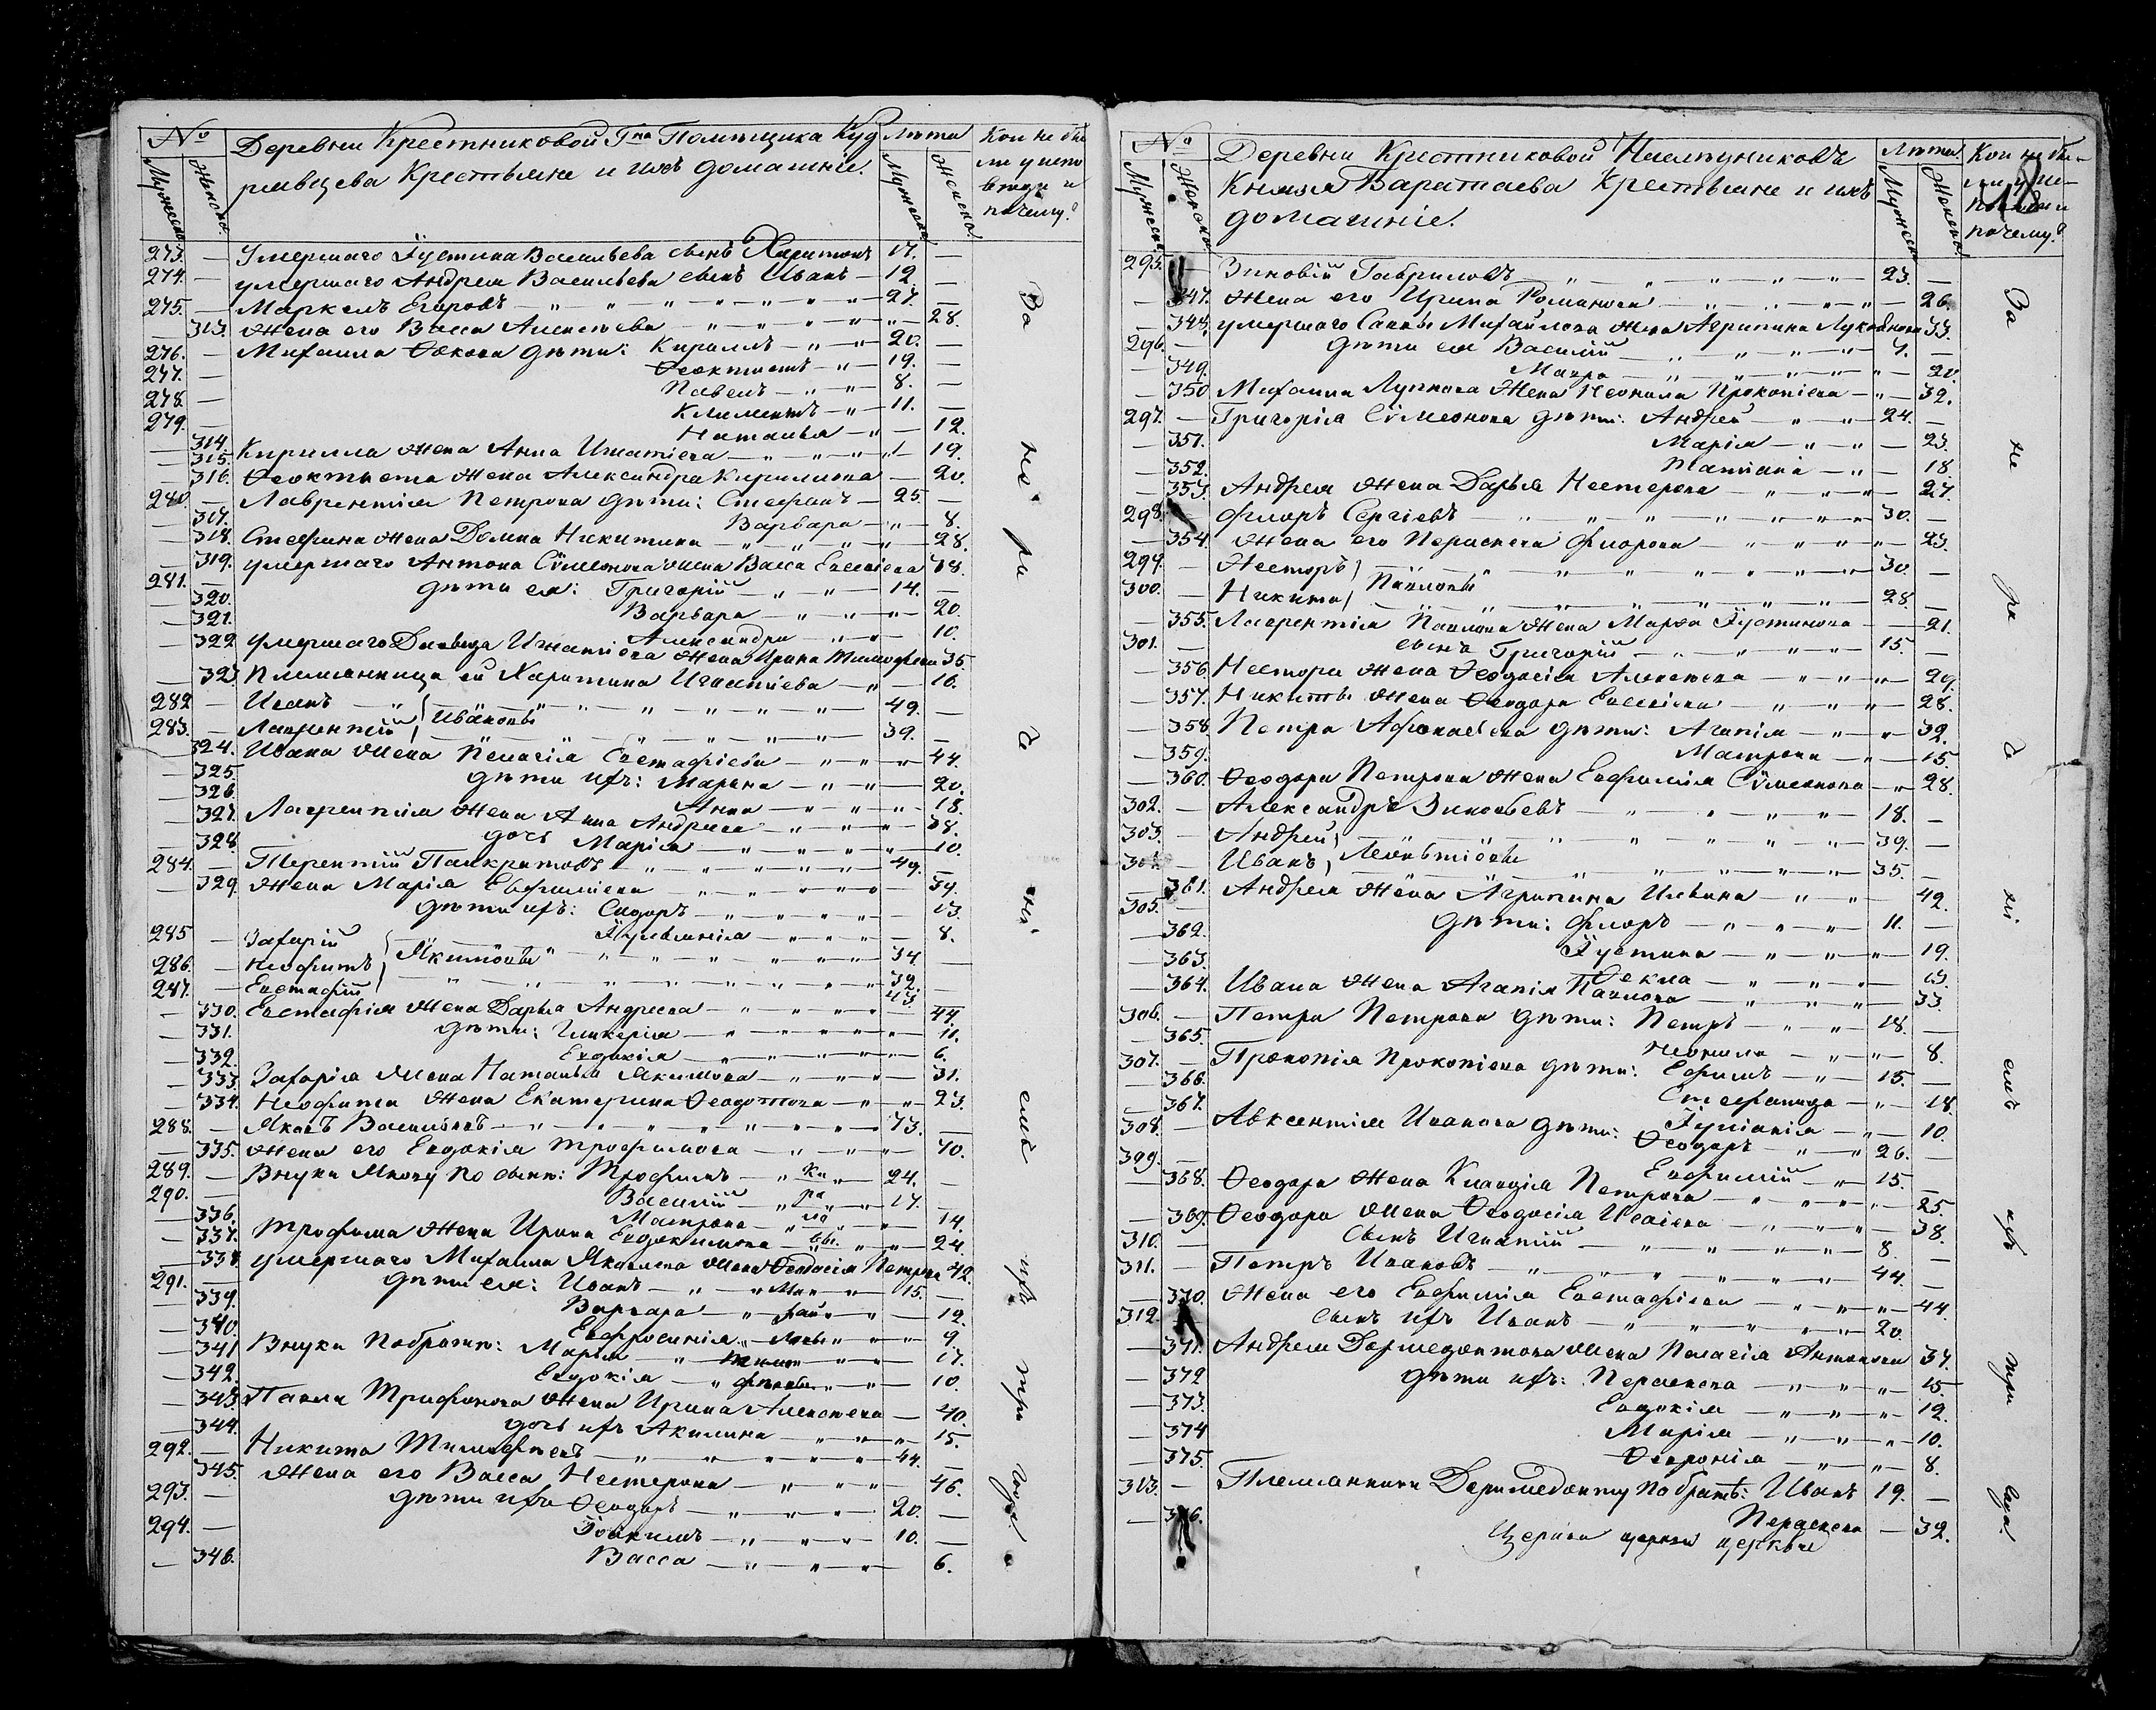 № Деревни Крестниковой Гна Помѣщика Куд Лѣта Кои не бы
рявцева Крестьяне и ихъ домашніе. ли у испо
Мужеска Женска Мужеска Женска вѣди и
почему?
273. — Умершаго Іустина Васильева сынъ Харитонъ 17. —
274. — умершаго Андрея Васильева сынъ Иванъ — 12. —
275. — Маркелъ Егоровъ — 27. —
— 313. Жена его Васса Алексѣева — 28.
276. — Михаила Ѳокова дѣти: Кириллъ — 20. —
277. — Ѳеоктистъ — 19. —
278. — Павелъ — 8. —
279. — Климентъ — 11. —
— 314. Наталья — 12.
— 315. Кирилла жена Анна Игнатіева — 19.
— 316. Ѳеоктиста жена Александра Кириллова — 20.
280. — Лаврентія Петрова дѣти: Стефанъ — 25. —
— 317. Варвара — 8.
— 318. Стефана жена Домна Никитина — 28.
— 319. умершаго Антона Сѵмеонова жена Васса Евсевіева 38.
281. — дѣти ея: Григорій — 14. —
— 320. Варвара — 20.
— 321. Александра — 10.
— 322. умершаго Давида Игнатіева жена Ирина Тимофеева 35.
— 323. Племянница ей Харитина Игнатіева — 16.
282. — Иванъ — 49. —
283. — Лаврентій } Ивановы — 39. —
— 324. Ивана жена Пелагія Евстафіева — 44.
— 325. дѣти ихъ: Марѳна — 20.
— 326. Анна — 18.
— 327. Лаврентія жена Анна Андреева — 38.
— 328. дочь Марія — 10.
284. — Терентій Панкратовъ — 49. —
— 329. Жена Марія Евфиміева — 39.
дѣти ихъ: Сидоръ — 13.
Іуліанія — 8.
285 — Захарій } Якимовы — 34 —
286. — Неофитъ — 32. —
287. — Евстафій — 43. —
— 330. Евстафія жена Дарья Андреева — 44
— 331. дѣти: Гликерія — 11.
— 332. Евдокія — 6.
— 333. Захарія жена Наталья Якимова — 31.
— 334. Неофита жена Екатерина Ѳеодотова — 23.
288. — Яковъ Васильевъ — 73. —
— 335. Жена его Евдокія Трофимова — 70.
289. — Внуки Якову по сынѣ: Трофимъ — 24. —
290. — Василій — 17. —
— 336. Матрона — 14.
— 337. Трофима жена Ирина Евдокимова — 24.
— 338 умершаго Михаила Яковлева жена Ѳеодосія Петрова 42.
291. — дѣти ея: Иванъ — 15. —
— 339. Варвара — 12.
— 340. Евфросинія — 9
— 341 Внуки по братѣ: Марія — 17.
— 342. Евдокія — 10.
— 343. Павла Трифонова жена Ирина Алексѣева — 40.
— 344. дочь ихъ Акилина — 15.
292. — Никита Тимофеевъ — 44. —
— 345. Жена его Васса Нестерова — 46.
293. — дѣти ихъ Ѳеодоръ — 20. —
294. — Іоакимъ — 10. —
— 346. Васса — 6.
За не ра де ні емъ ихъ три года.
№ Деревни Крестниковой Наслѣдниковъ Лѣта Кои не бы-
Князя Баратаева Крестьяне и ихъ ли у ис-
домашніе. повѣди и
Мужеска Женска Мужеска Женска почему?
295. — Зиновій Гавриловъ — 23. —
— 347. Жена его Ирина Романова — 26.
— 348. умершаго Саввы Михайлова жена Агрипина Лукоянова 33.
296. — дѣти ея Василій — 7. —
— 349. Мавра — 20.
— 350 Михаила Луппова жена Неонила Прокопіева — 32.
297. — Григорія Сѵмеонова дѣти: Андрей — 24. —
— 351. Марія — 23.
— 352. Татіана — 18
— 353. Андрея жена Дарья Нестерова — 27.
298. — Флоръ Сергіевъ — 30. —
— 354. Жена его Параскева Флорова — 23.
299. — Несторъ } — 30. —
300. — Никита } Павловы — 28. —
— 355. Лаврентія Павлова жена Марѳа Іустинова — 21.
301. — сынъ Григорій — 15. —
— 356. Нестора жена Ѳеодосія Алексѣева — 29.
— 357. Никиты жена Ѳеодора Евсевіева — 28.
— 358. Петра Афонасьева дѣти: Агапія — 32.
— 359. Матрона — 15.
— 360. Ѳеодора Петрова жена Евфимія Сѵмеонова — 28.
302. — Александръ Зиновьевъ — 18. —
303. — Андрей } — 39. —
304. — Иванъ } Леонтіевы — 35. —
— 361. Андрея жена Агрипина Ильина — 42.
305. — дѣти: Флоръ — 11. —
— 362. Іустина — 19.
— 363. Ѳекла — 13.
— 364. Ивана жена Агапія Павлова — 33.
306. — Петра Петрова дѣти: Петръ — 18. —
— 365. Неонила — 8.
307. — Прокопія Прокопіева дѣти: Ефимъ — 15. —
— 366. Стефанида — 18.
— 367. Іуліанія — 10.
308. — Авксентія Иванова дѣти: Ѳеодоръ — 26. —
309. — Евфимій — 15. —
— 368. Ѳеодора жена Клавдія Петрова — 25.
— 369. Ѳеодора жена Ѳеодосія Исаіева — 38.
310. — Сынъ Игнатій — 8. —
311. — Петръ Ивановъ — 44. —
— 370. Жена его Евфимія Евстафіева — 44.
312. — Сынъ ихъ Иванъ — 20. —
— 371. Андрея Дормедонтова жена Пелагія Антонова 37.
— 372 дѣти ихъ: Параскева — 15.
— 373. Евдокія — 12.
— 374 Марія — 10.
— 375. Ѳевронія — 8.
313. — Племянники Дормедонту по братѣ: Иванъ 19. —
— 376. Параскева — 32.
За не ра де ні емъ ихъ три года.